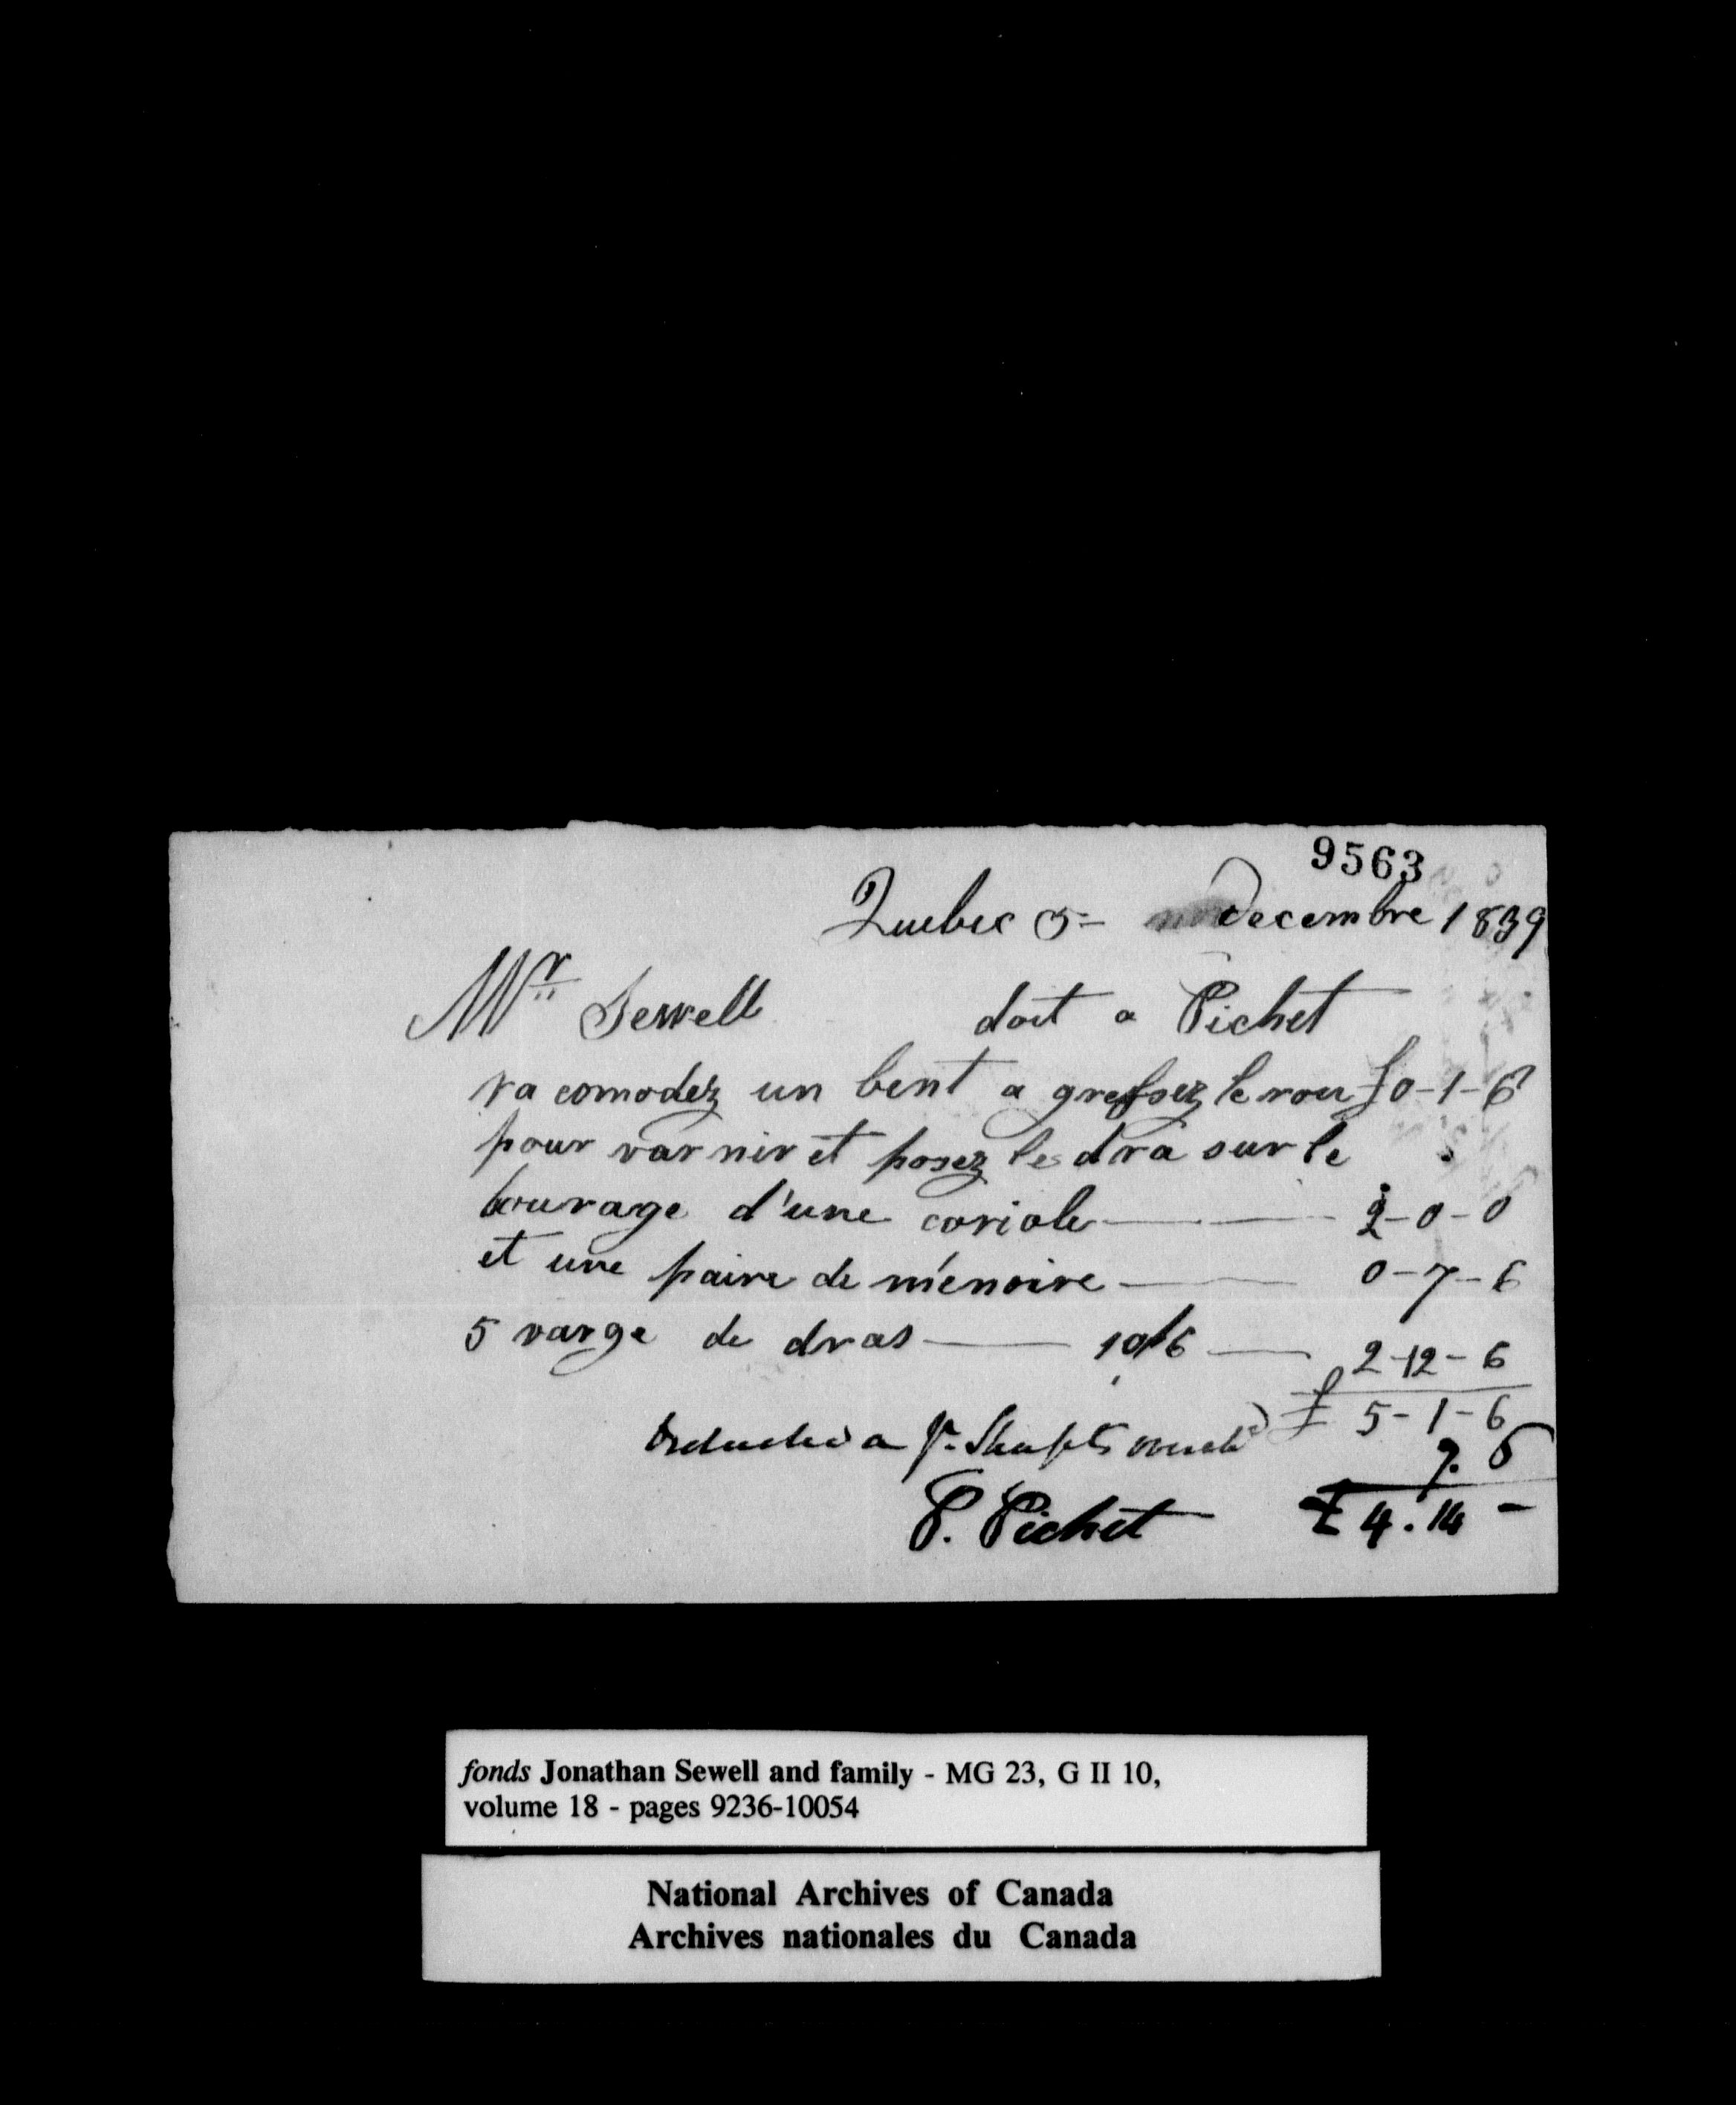 9563
Quebec 5= decembre 1839
Mr Sewell doit a Pichet
racomodez un bent a gressez le rou £0-1-6
pour varnir et posez les dra sur le
bourage d'une cariole 2-0-0
et une paire de ménoire 0-7-6
5 varge de dras 10/6 2-12-6
£ 5-1-6
Deduct a pr. Shafts 7.6
P. Pichet £4.14-
fonds Jonathan Sewell and family - MG 23, G II 10,
volume 18 - pages 9236-10054
National Archives of Canada
Archives nationales du Canada